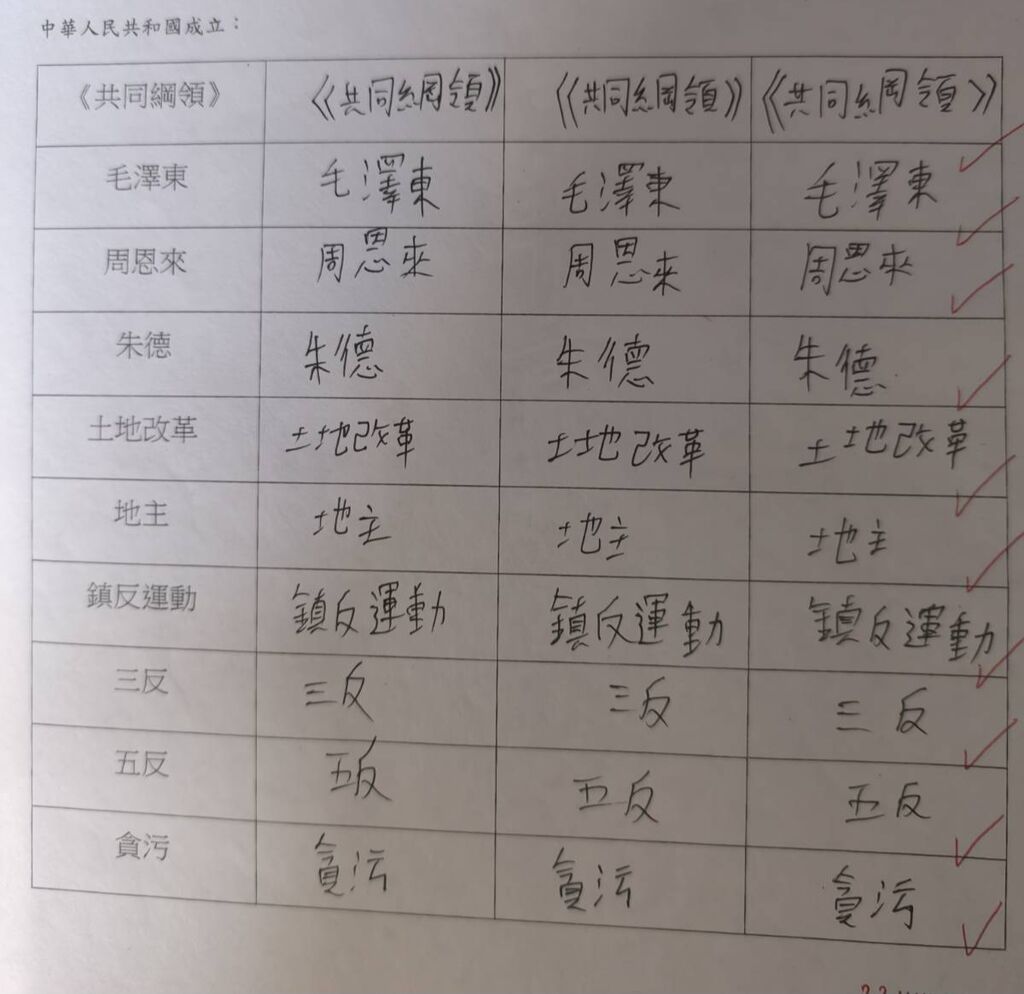 中華人民共和國成立：
《共同綱領》 《共同綱領》 《共同綱領》 《共同綱領》
毛澤東 毛澤東 毛澤東 毛澤東
周恩來 周恩來 周恩來 周恩來
朱德 朱德 朱德 朱德
土地改革 土地改革 土地改革 土地改革
地主 地主 地主 地主
鎮反運動 鎮反運動 鎮反運動 鎮反運動
三反 三反 三反 三反
五反 五反 五反 五反
貪污 貪污 貪污 貪污